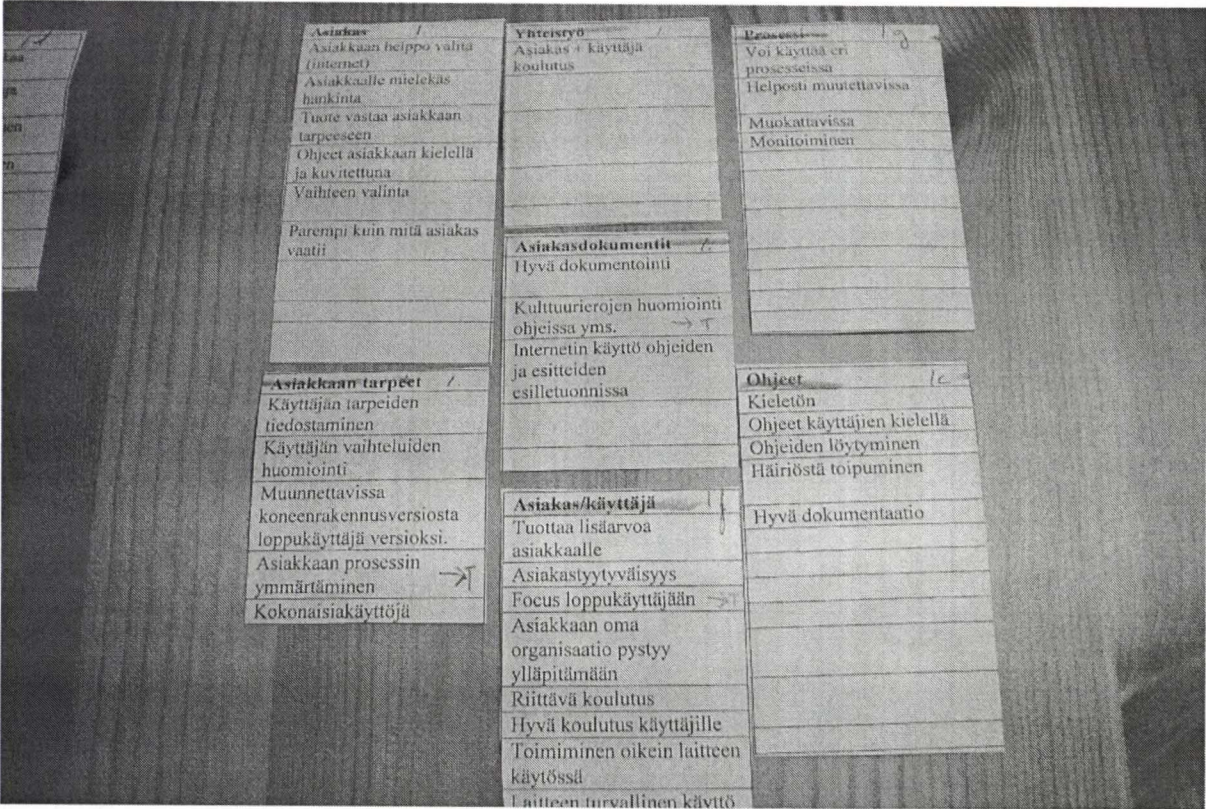 Asiakas
Asiakkaan helppo valita
(internet)
Asiakkaalle mielekäs
hankinta
Tuote vastaa asiakkaan
tarpeeseen
Ohjeet asiakkaan kielellä
ja kuvitettuna
Vaihteen valinta
Parempi kuin mitä asiakas
vaatii
Asiakkaan tarpeet
Käyttäjän tarpeiden
tiedostaminen
Käyttäjän vaihteluiden
huomiointi
Muunnettavissa
koneenrakennusversiosta
loppukäyttäjä versioksi.
Asiakkaan prosessin
ymmärtäminen →T
Kokonaisiakäyttöjä
Yhteistyö
Asiakas + käyttäjä
koulutus
Asiakasdokumentit
Hyvä dokumentointi
Kulttuurierojen huomiointi
ohjeissa yms. →T
Internetin käyttö ohjeiden
ja esitteiden
esilletuonnissa
Asiakas/käyttäjä
Tuottaa lisäarvoa
asiakkaalle
Asiakastyytyväisyys
Focus loppukäyttäjään →T
Asiakkaan oma
organisaatio pystyy
ylläpitämään
Riittävä koulutus
Hyvä koulutus käyttäjille
Toimiminen oikein laitteen
käytössä
Laitteen turvallinen käyttö
Prosessi
Voi käyttää eri
prosesseissa
Helposti muutettavissa
Muokattavissa
Monitoiminen
Ohjeet
Kieletön
Ohjeet käyttäjien kielellä
Ohjeiden löytyminen
Häiriöstä toipuminen
Hyvä dokumentaatio